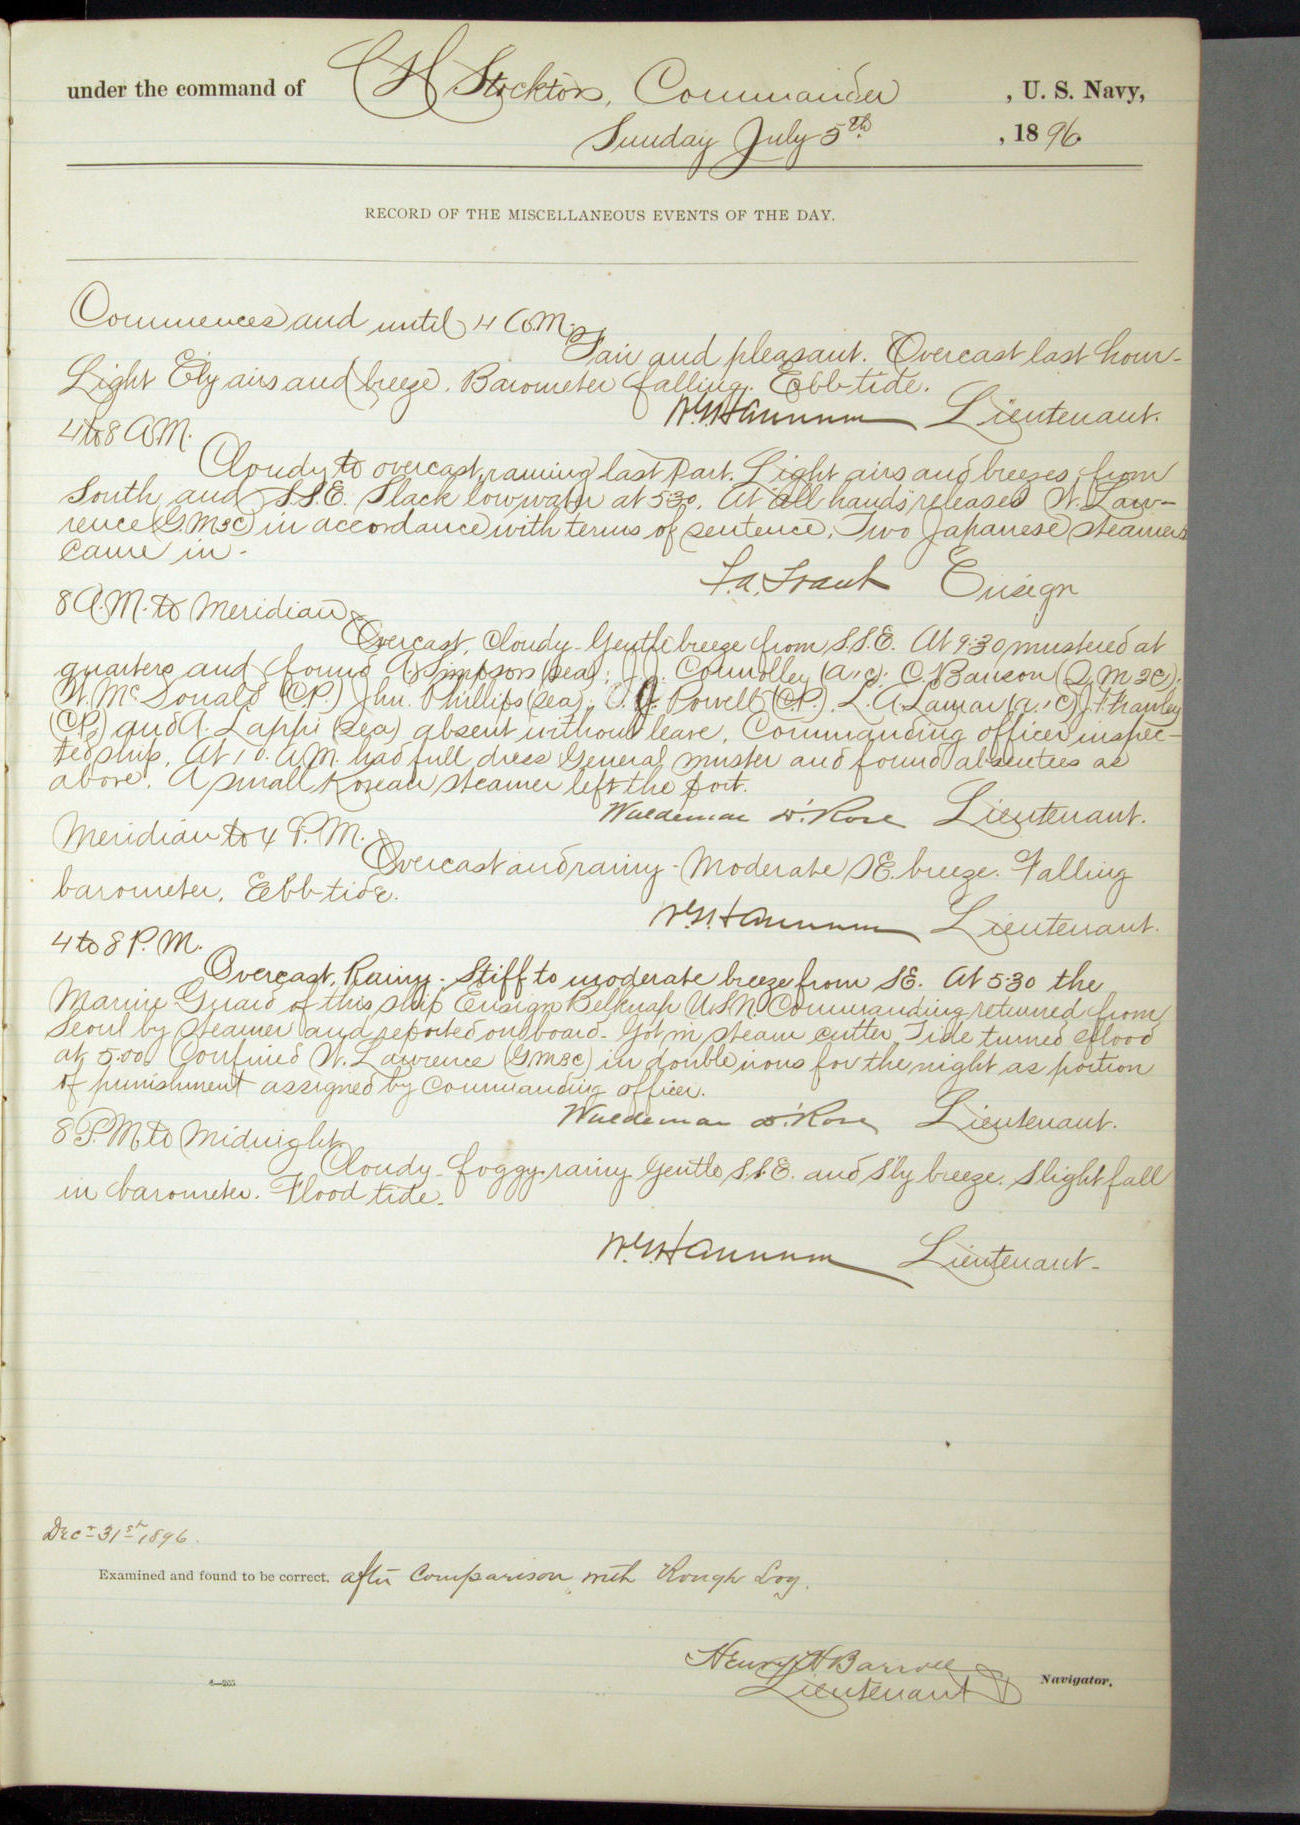 under the command of C H Stockton, Commander , U. S. Navy,
Sunday July 5th , 1896
RECORD OF THE MISCELLANEOUS EVENTS OF THE DAY.
Commences and until 4 A.M.
Fair and pleasant. Overcast last hour-
Light Ely airs and breeze. Barometer falling. Ebb tide.
W.G. Hannum Lieutenant.
4 to 8 A.M.
Cloudy to overcast, raining last part. Light airs and breezes from
South and S.S.E. Slack low water at 5:30. At "All hands" released W. Law-
rence (GM3C) in accordance with terms of sentence. Two Japanese steamers
came in.
F.A. Traut Ensign
8 A.M. to Meridian
Overcast, Cloudy - Gentle breeze from S.S.E. At 9:30 mustered at
quarters and found A. Simpson (Sea); J.J. Connolley (a.c); O. Banson (Q.M 2C);
W. McDonald (C.P.) Jhn. Phillips (Sea); O. J. Powell (CP.), L. A. Lamar (a.,c) J. Frawley
(CP.) and A. Lappi (Sea) absent without leave. Commanding officer inspec-
ted ship. At 10. A.M. had full dress General muster and found absentees as
above. A small Korean steamer left the port.
Waldemar D. Rose Lieutenant.
Meridian to 4 P.M.
Overcast and rainy - Moderate SE. breeze. Falling
barometer. Ebb tide.
W.G. Hannum Lieutenant.
4 to 8 P.M.
Overcast, Rainy. Stiff to moderate breeze from SE. At 5:30 the
Marine Guard of this ship Ensign Belknap U.S.N. Commanding returned from
Seoul by steamer and reported on board. Got in steam cutter. Tide turned flood
at 5:00. Confined W. Lawrence (GM3C) in double irons for the night as portion
of punishment assigned by Commanding officer.
Waldemar D. Rose Lieutenant.
8 P.M. to Midnight
Cloudy - foggy rainy. Gentle S.S.E. and S'ly breeze. Slight fall
in barometer. Flood tide.
W.G. Hannum Lieutenant-
Decr 31st 1896.
Examined and found to be correct. after Comparison with Rough Log.
Henry H Barroll
Lieutenant Navigator.